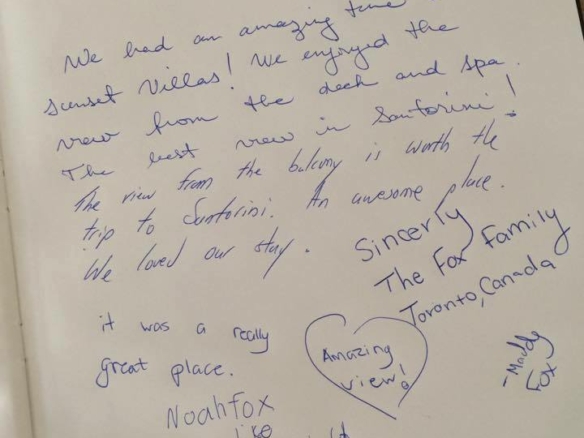 We had an amazing time
Sunset Villas! We enjoyed the
view from the deck and spa.
The best view in Santorini!
The view from the balcony is worth the
trip to Santorini. An awesome place.
We loved our stay.
Sincerly
The Fox Family
Toronto, Canada
it was a really
great place.
Noahfox
Amazing
view!
-Maddy
Fox